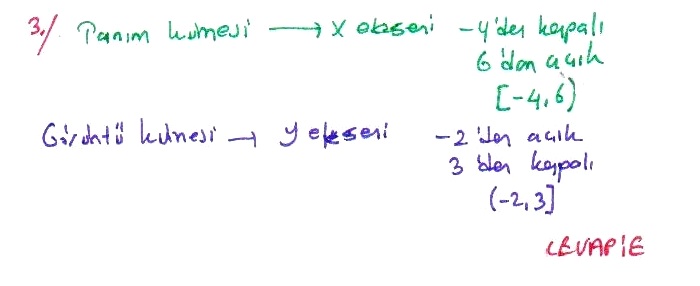 3./ Tanım kümesi → x ekseni -4'den kapalı
6'dan açık
[-4,6)
Görüntü kümesi → y ekseni -2'den açık
3'den kapalı
(-2,3]
CEVAP:E